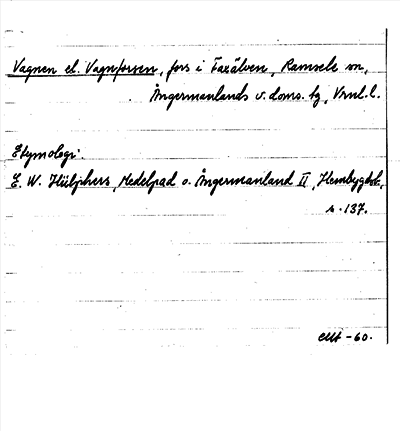 Vagnen el. Vagnforsen, fors i Faxälven, Ramsele sn,
Ångermanlands v. doms. tg, Vrnl. l.
Etymologi:
E. W. Hülphers, Medelpad o. Ångermanland II, Hembygdsb.,
s. 137.
-60.